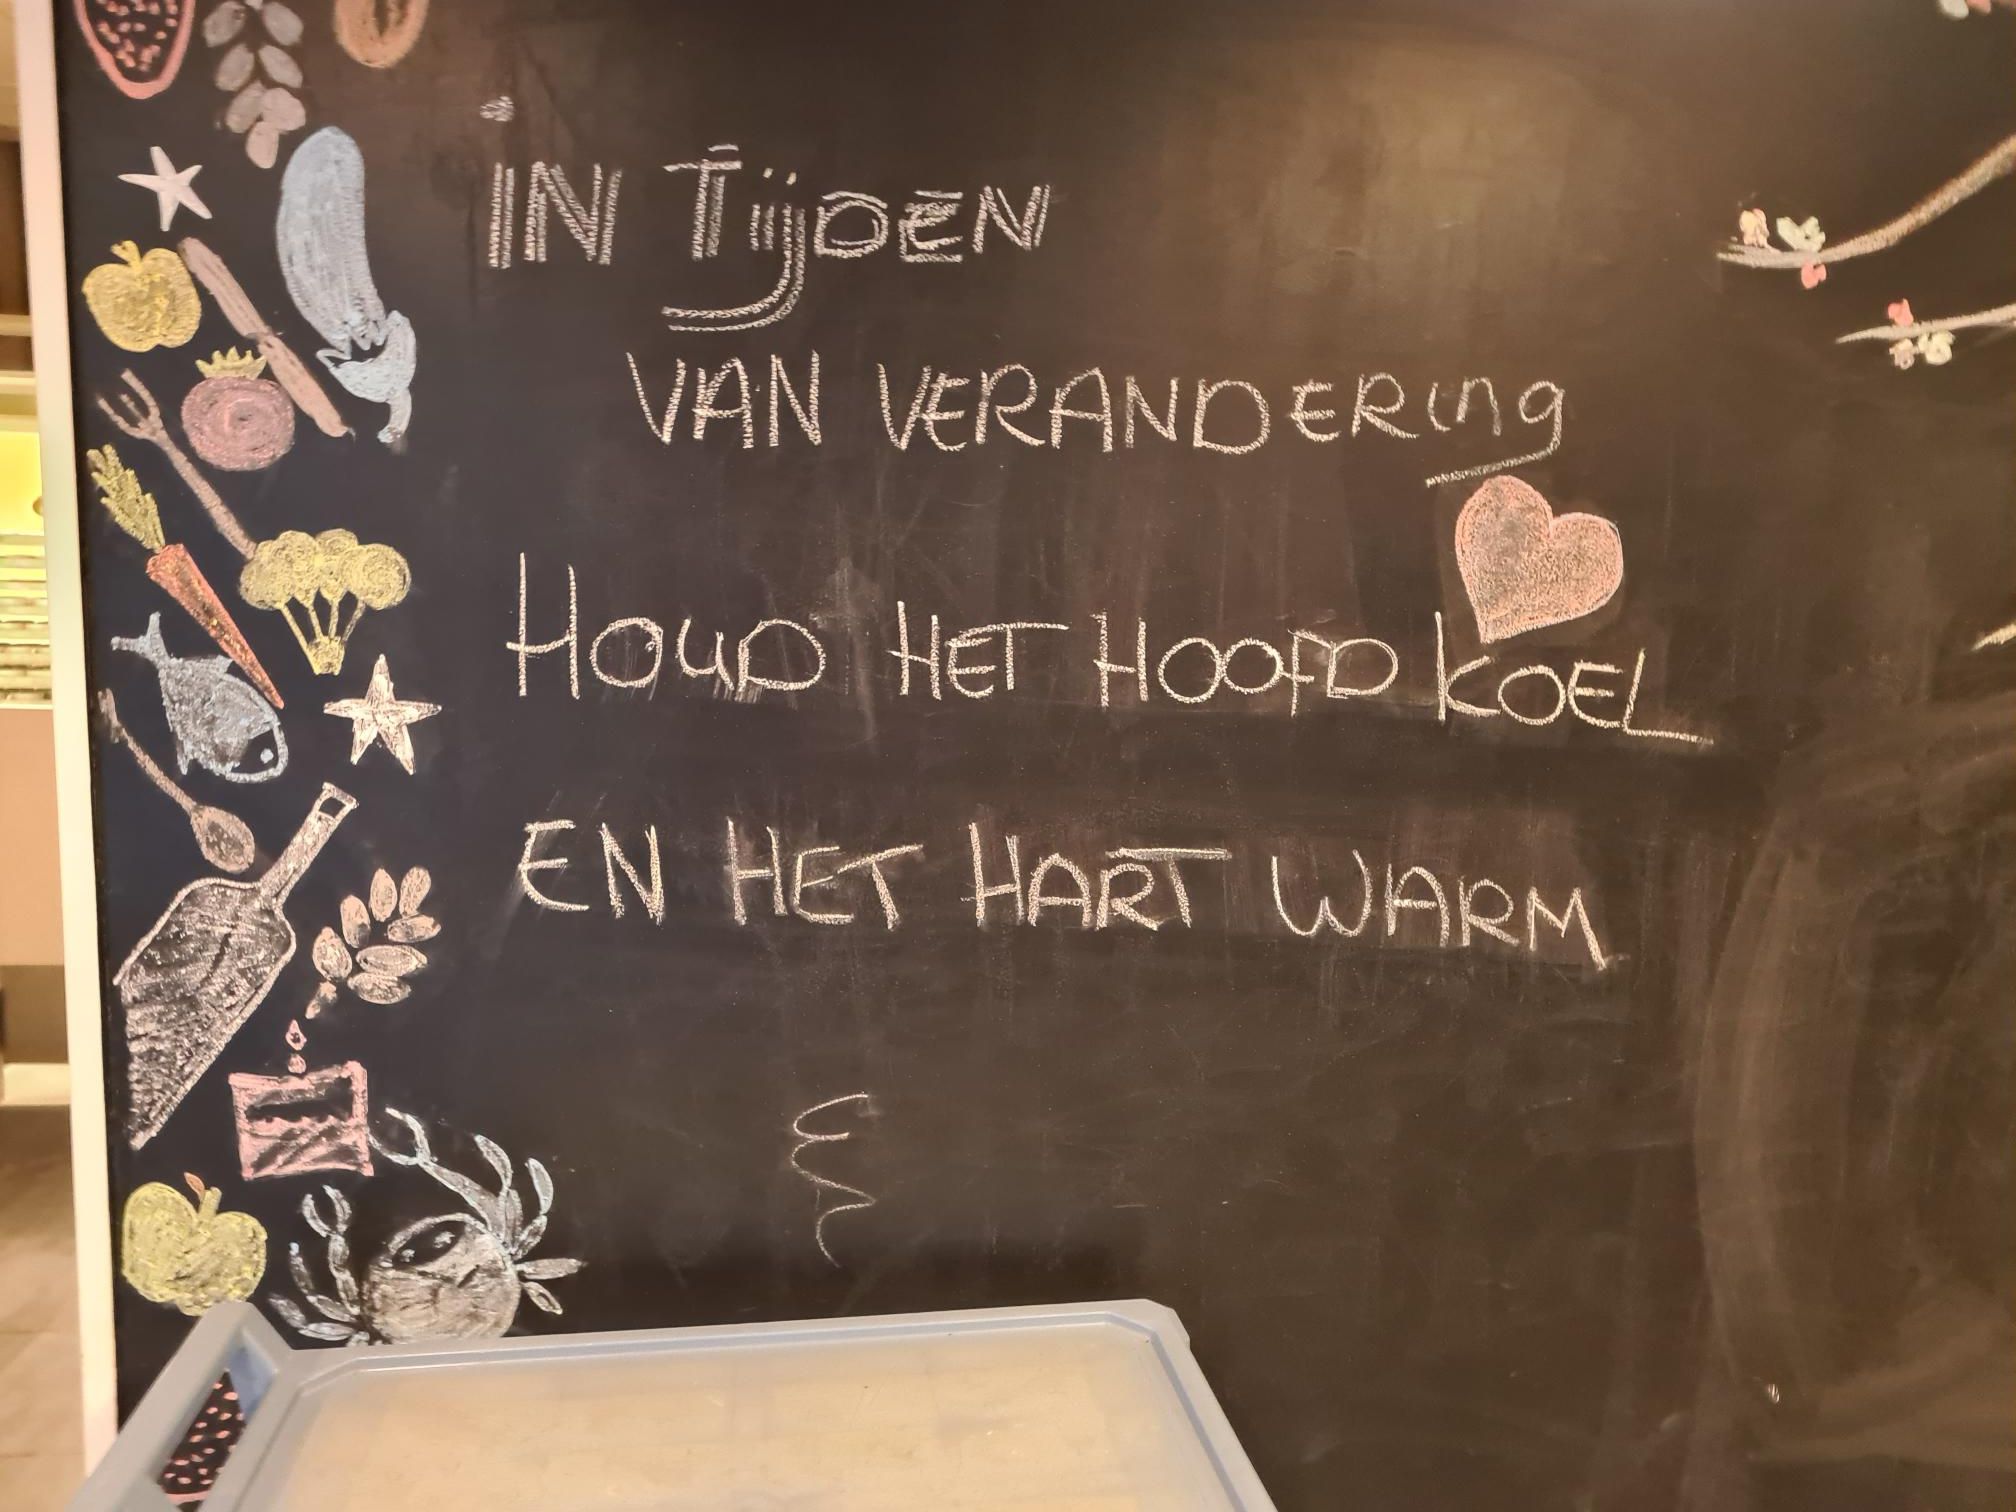 iN TijDEN
VAN VERANDERing
HOuD HET HOOfD KOEL
EN HET HART WARM